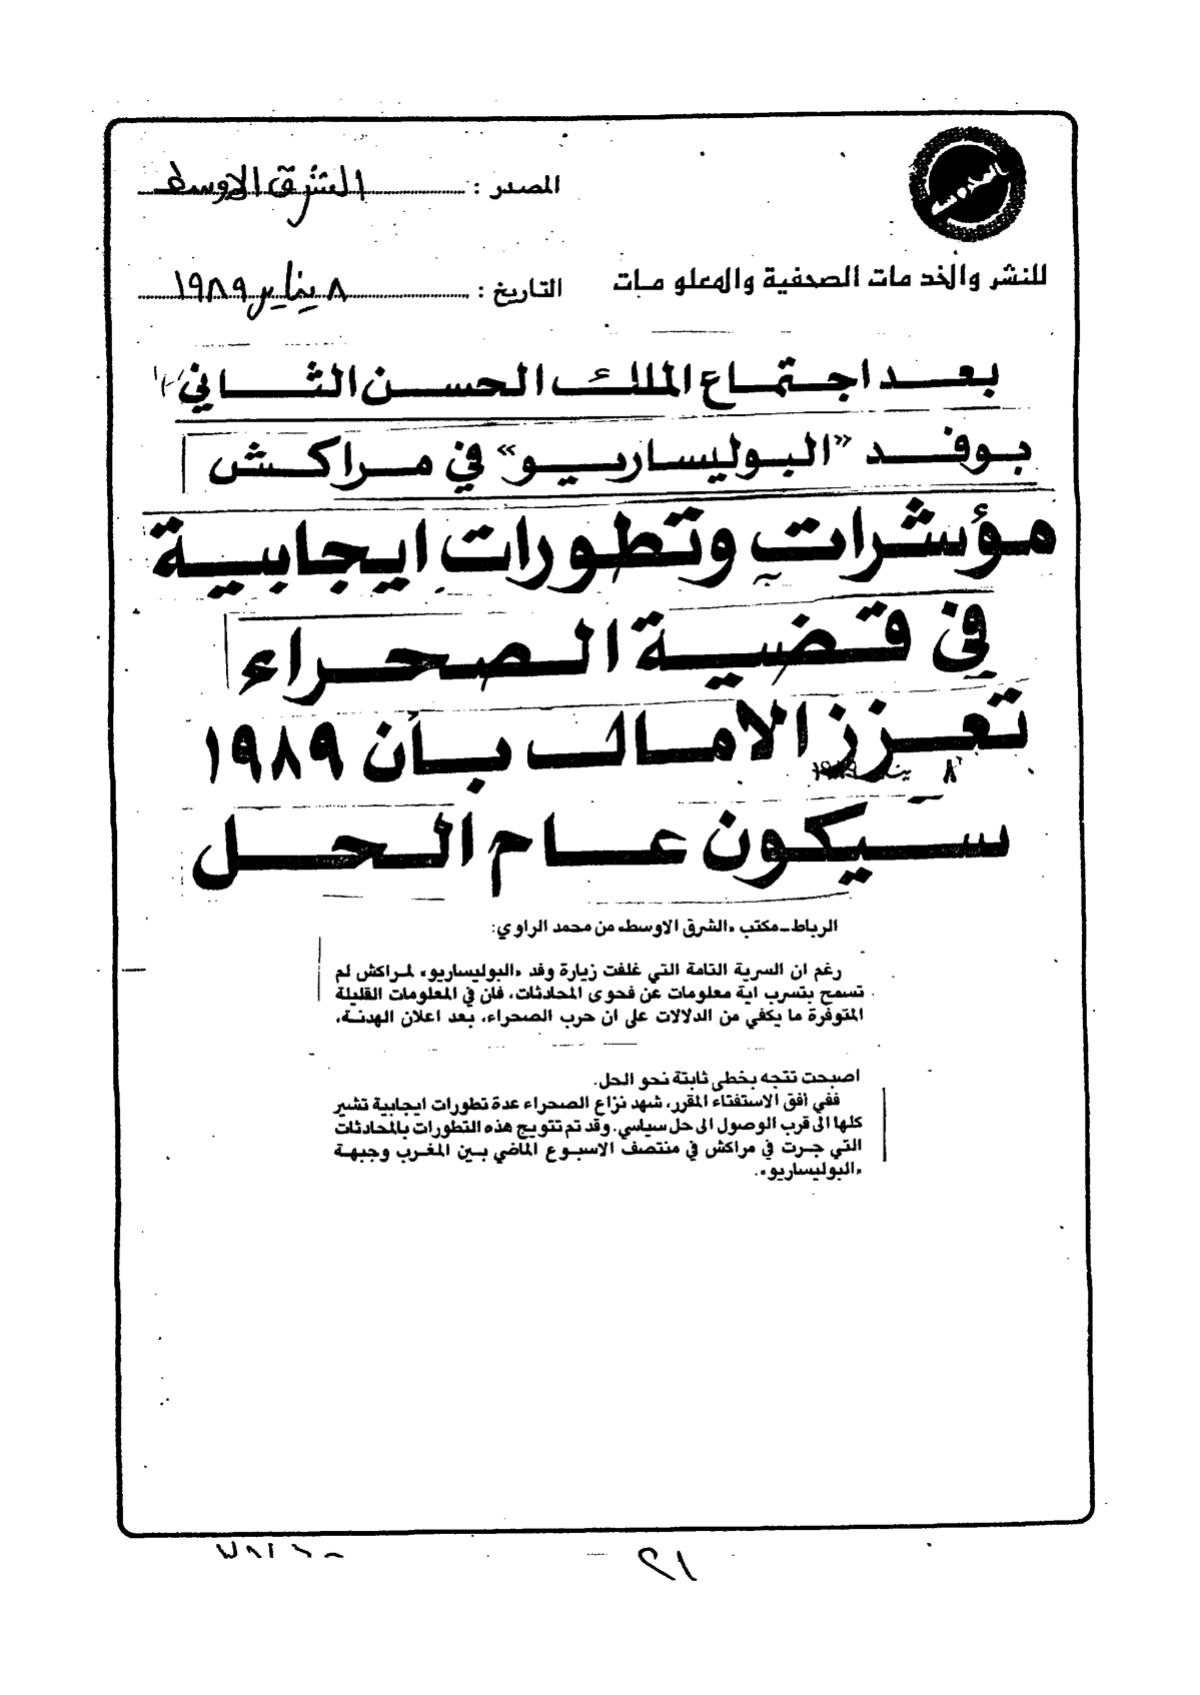 المصدر : الشرق الاوسط
للنشر والخدمات الصحفية والمعلومات
التاريخ : ٨ يناير ١٩٨٩
بعد اجتماع الملك الحسن الثاني
بوفد «البوليساريو» في مراكش
مؤشرات وتطورات ايجابية
في قضية الصحراء
تعزز الامال بأن ١٩٨٩
٨ يناير ١٩٨٩
سيكون عام الحل
الرباط ـ مكتب «الشرق الاوسط» من محمد الراوي:
رغم ان السرية التامة التي غلفت زيارة وفد «البوليساريو» لمراكش لم
تسمح بتسرب اية معلومات عن فحوى المحادثات، فان في المعلومات القليلة
المتوفرة ما يكفي من الدلالات على ان حرب الصحراء، بعد اعلان الهدنة،
اصبحت تتجه بخطى ثابتة نحو الحل.
ففي أفق الاستفتاء المقرر، شهد نزاع الصحراء عدة تطورات ايجابية تشير
كلها الى قرب الوصول الى حل سياسي. وقد تم تتويج هذه التطورات بالمحادثات
التي جرت في مراكش في منتصف الاسبوع الماضي بين المغرب وجبهة
«البوليساريو».